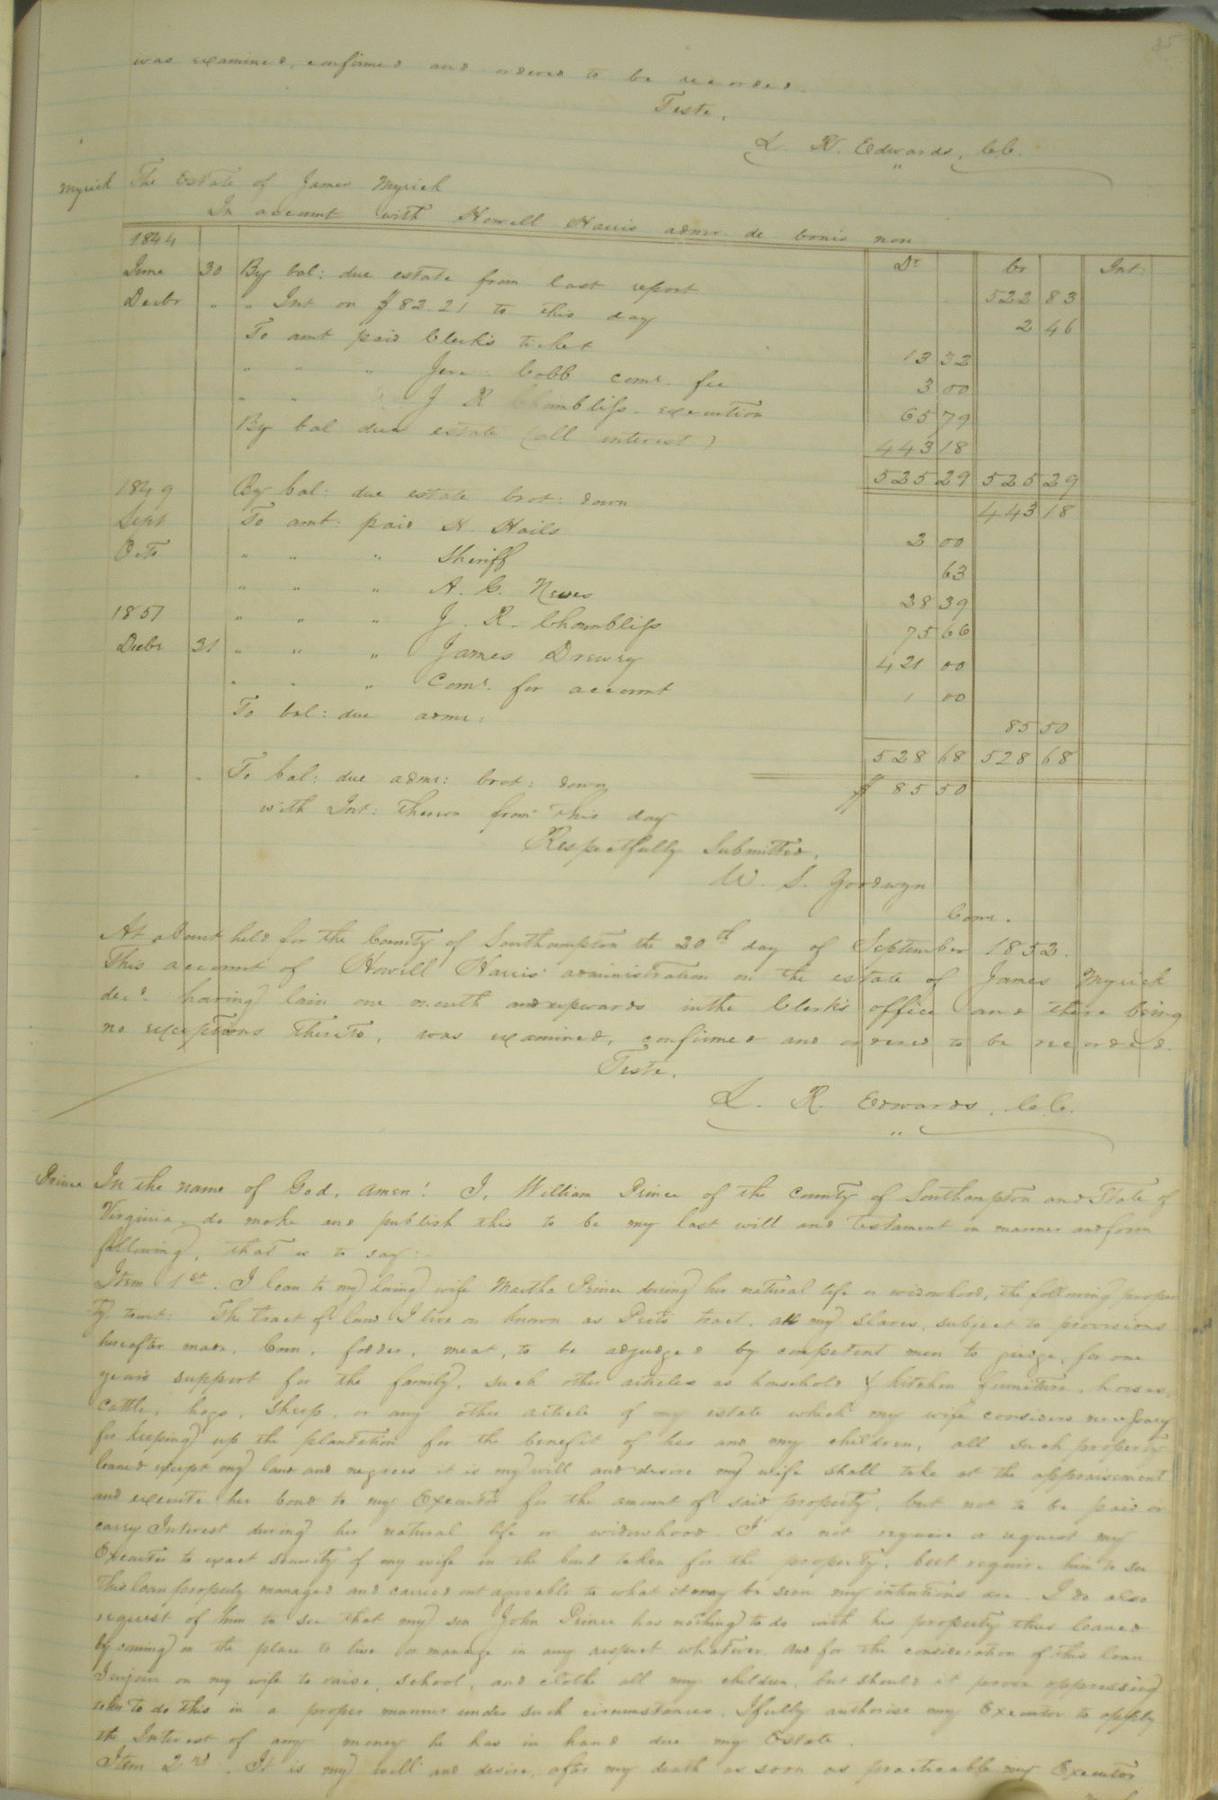 85
was examined, confirmed and ordered to be recorded.
Teste,
L. R. Edwards, C.C.
Myrick The Estate of James Myrick
In account with Howell Harris admr. de bonis non
1844 Dr Cr Int:
June 30 By bal: due estate from last report 522 83
Decbr " " Int on $82.21 to this day 2 46
To amt paid Clerk's ticket 13 32
" " " Jere Cobb comr. fee 3 00
" " J R Chambliss execution 65 79
By bal due estate (all interest) 443 18
525 29 525 29
1849 By bal: due estate brot: down 443 18
Sept To amt: paid N. Hails 2 00
Octo " " " Sheriff 63
" " " A. G. 28 39
1851 " " " J. R. Chambliss 75 66
Decbr 31 " " " James Drewry 421 00
" " " Comr. for account 1 00
To bal: due admr: 85 50
528 68 528 68
" " To bal: due admr: brot: down $ 85 50
with Int: thereon from this day
Respectfully Submitted,
W. S. Goodwyn
Comr.
At a Court held for the County of Southampton the 20th day of September 1852.
This account of Howell Harris' administration on the estate of James Myrick
decd. having lain one month and upwards in the Clerk's office and there being
no exceptions thereto, was examined, confirmed and ordered to be recorded.
Teste,
L. R. Edwards, C.C.
Prince In the name of God, Amen! I, William Prince of the County of Southampton and State of
Virginia do make and publish this to be my last will and Testament in manner and form
following, that is to say:
Item 1st. I loan to my loving wife Martha Prince during her natural life or widowhood, the following proper
ty towit: The tract of land I live on known as tract, all my slaves, subject to provisions
hereafter made, Corn, fodder, meat, to be adjudged by competent men to judge, for one
years support for the family, such other articles as household & kitchen furniture, horses,
cattle, hogs, sheep, or any other article of my estate which my wife considers necessary
for keeping up the plantation for the benefit of her and my children, all such property
loaned except my land and negroes it is my will and desire my wife shall take at the appraisement
and execute her bond to my Executor for the amount of said property, but not to be paid or
carry Interest during her natural life or widowhood. I do not require or request my
Executor to exact security of my wife in the bond taken for the property, but require him to see
this loan property managed and carried out agreeable to what it may be seen my intentions are. I do also
request of him to see that my son John Prince has nothing to do with his property thus loaned
by coming on the place to live or manage in any respect whatever, and for the consideration of this loan
I enjoin on my wife to raise, school, and clothe all my children, but should it prove oppressing
to her to do this in a proper manner under such circumstances, I fully authorise my Executor to apply
the Interest of any money he has in hand due my Estate.
Item 2nd. It is my will and desire, after my death as soon as practicable my Executor